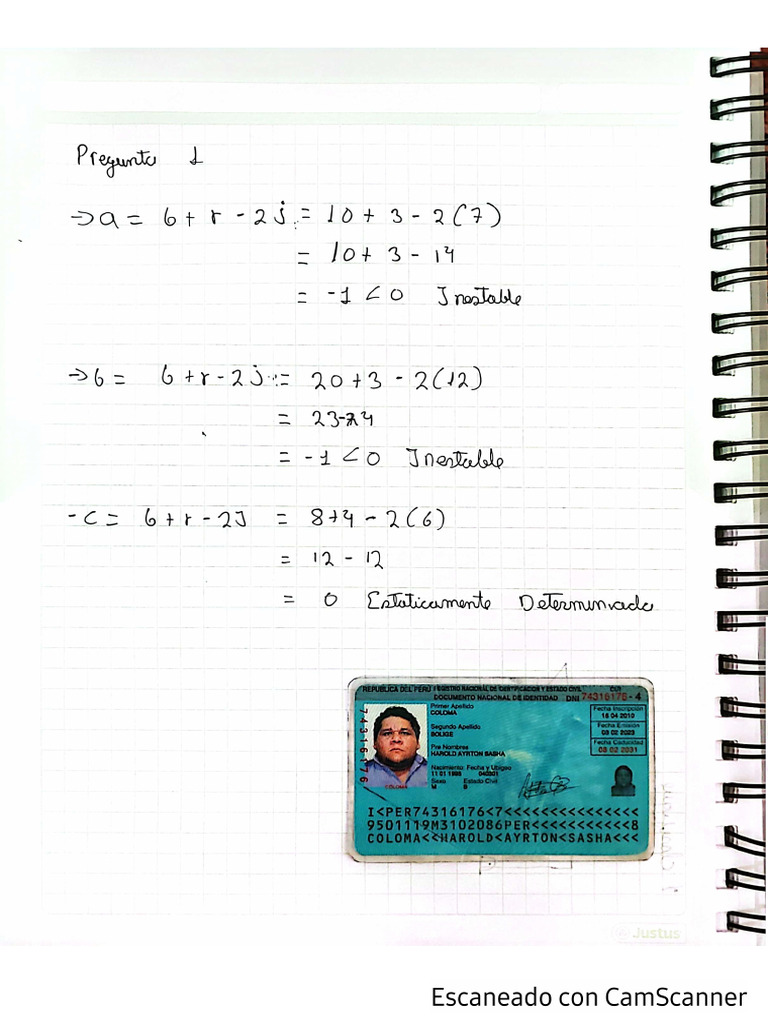 Pregunta 1
→ a = b + r - 2j = 10 + 3 - 2(7)
= 10 + 3 - 14
= -1 < 0 Inestable
→ b = b + r - 2j = 20 + 3 - 2(12)
= 23-24
= -1 < 0 Inestable
- c = b + r - 2J = 8+4 - 2(6)
= 12 - 12
= 0 Estaticamente Determinada
REPUBLICA DEL PERÚ REGISTRO NACIONAL DE IDENTIFICACION Y ESTADO CIVIL CUI
DOCUMENTO NACIONAL DE IDENTIDAD DNI 74316176 - 4
Primer Apellido
COLOMA
Segundo Apellido
Pre Nombres
HAROLD AYRTON SASHA
Nacimiento: Fecha y Ubigeo
11 01 1995 040301
Sexo Estado Civil
M S
Fecha Inscripción
16 04 2010
Fecha Emisión
08 02 2023
Fecha Caducidad
08 02 2031
74316176
COLOMA
I<PER74316176<7<<<<<<<<<<<<<<<
9501119M3102086PER<<<<<<<<<<<8
COLOMA<<HAROLD<AYRTON<SASHA<<<
Justus
Escaneado con CamScanner